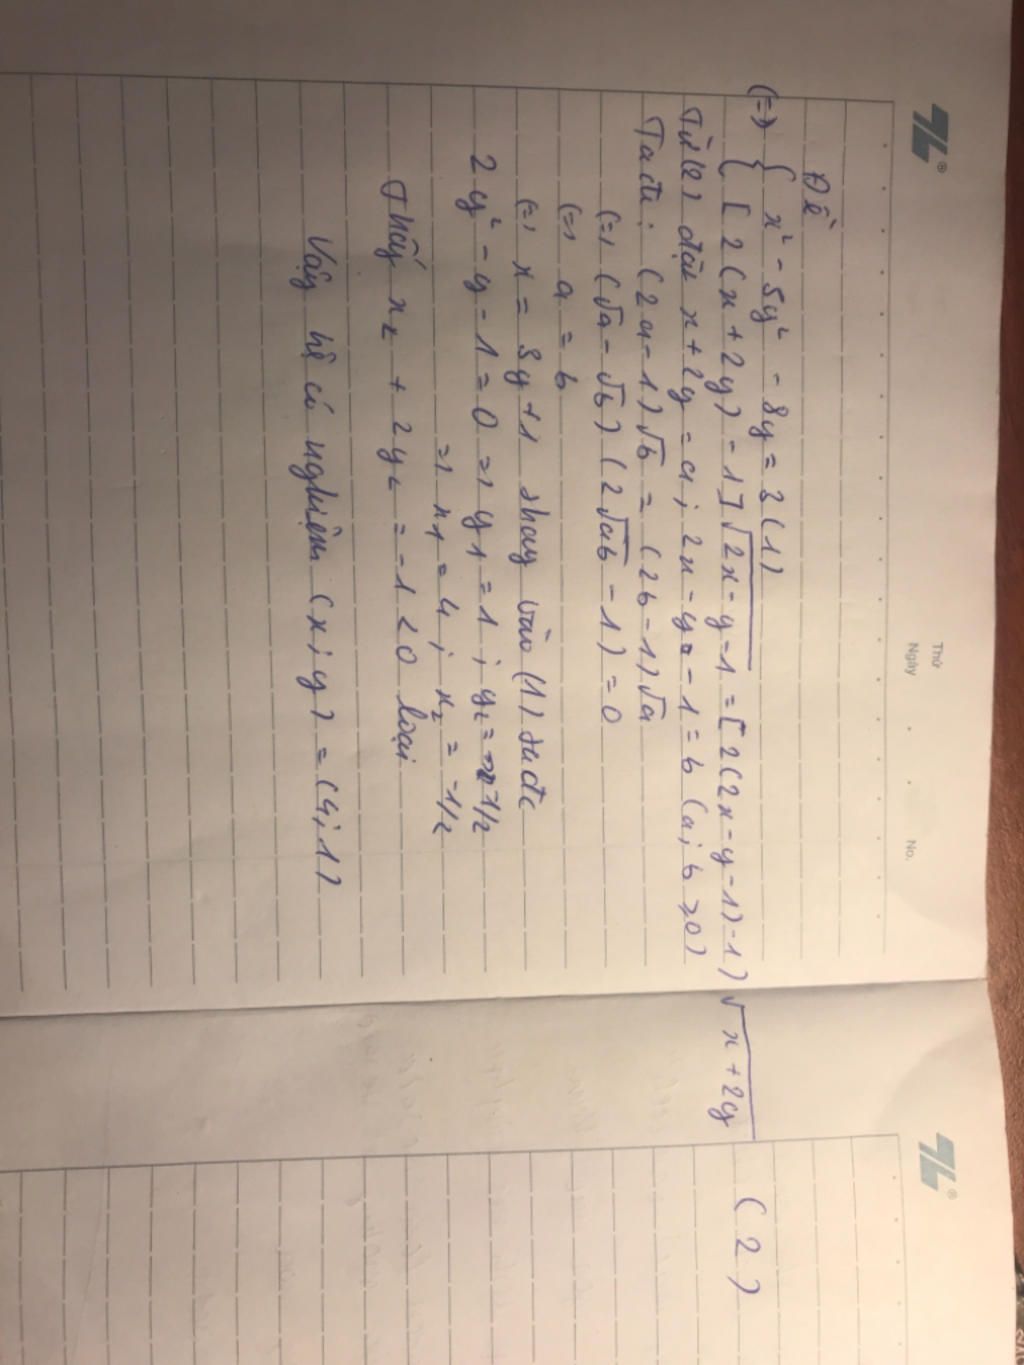 Thứ
Ngày . . No.
Đề
(=) { x² - 5y² - 8y = 3 (1)
{ [2(x+2y) - 1]√2x-y-1 = [2(2x-y-1)-1)√x+2y (2)
Từ (2) đặt x+2y = a; 2x-y-1 = b (a; b ≥0)
Ta đc: (2a-1)√b = (2b-1)√a
(=) (√a-√b) (2√ab - 1) = 0
(=) a = b
(=) x = 3y+1 thay vào (1) ta đc
2y² - y - 1 = 0 => y₁ = 1; y₂ = -1/2
=> x₁ = 4; x₂ = -1/2
Thấy x₂ + 2y₂ = -1 < 0 loại
Vậy hệ có nghiệm (x;y) = (4;1)